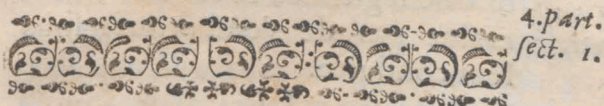 4. part.
ſect. 1.